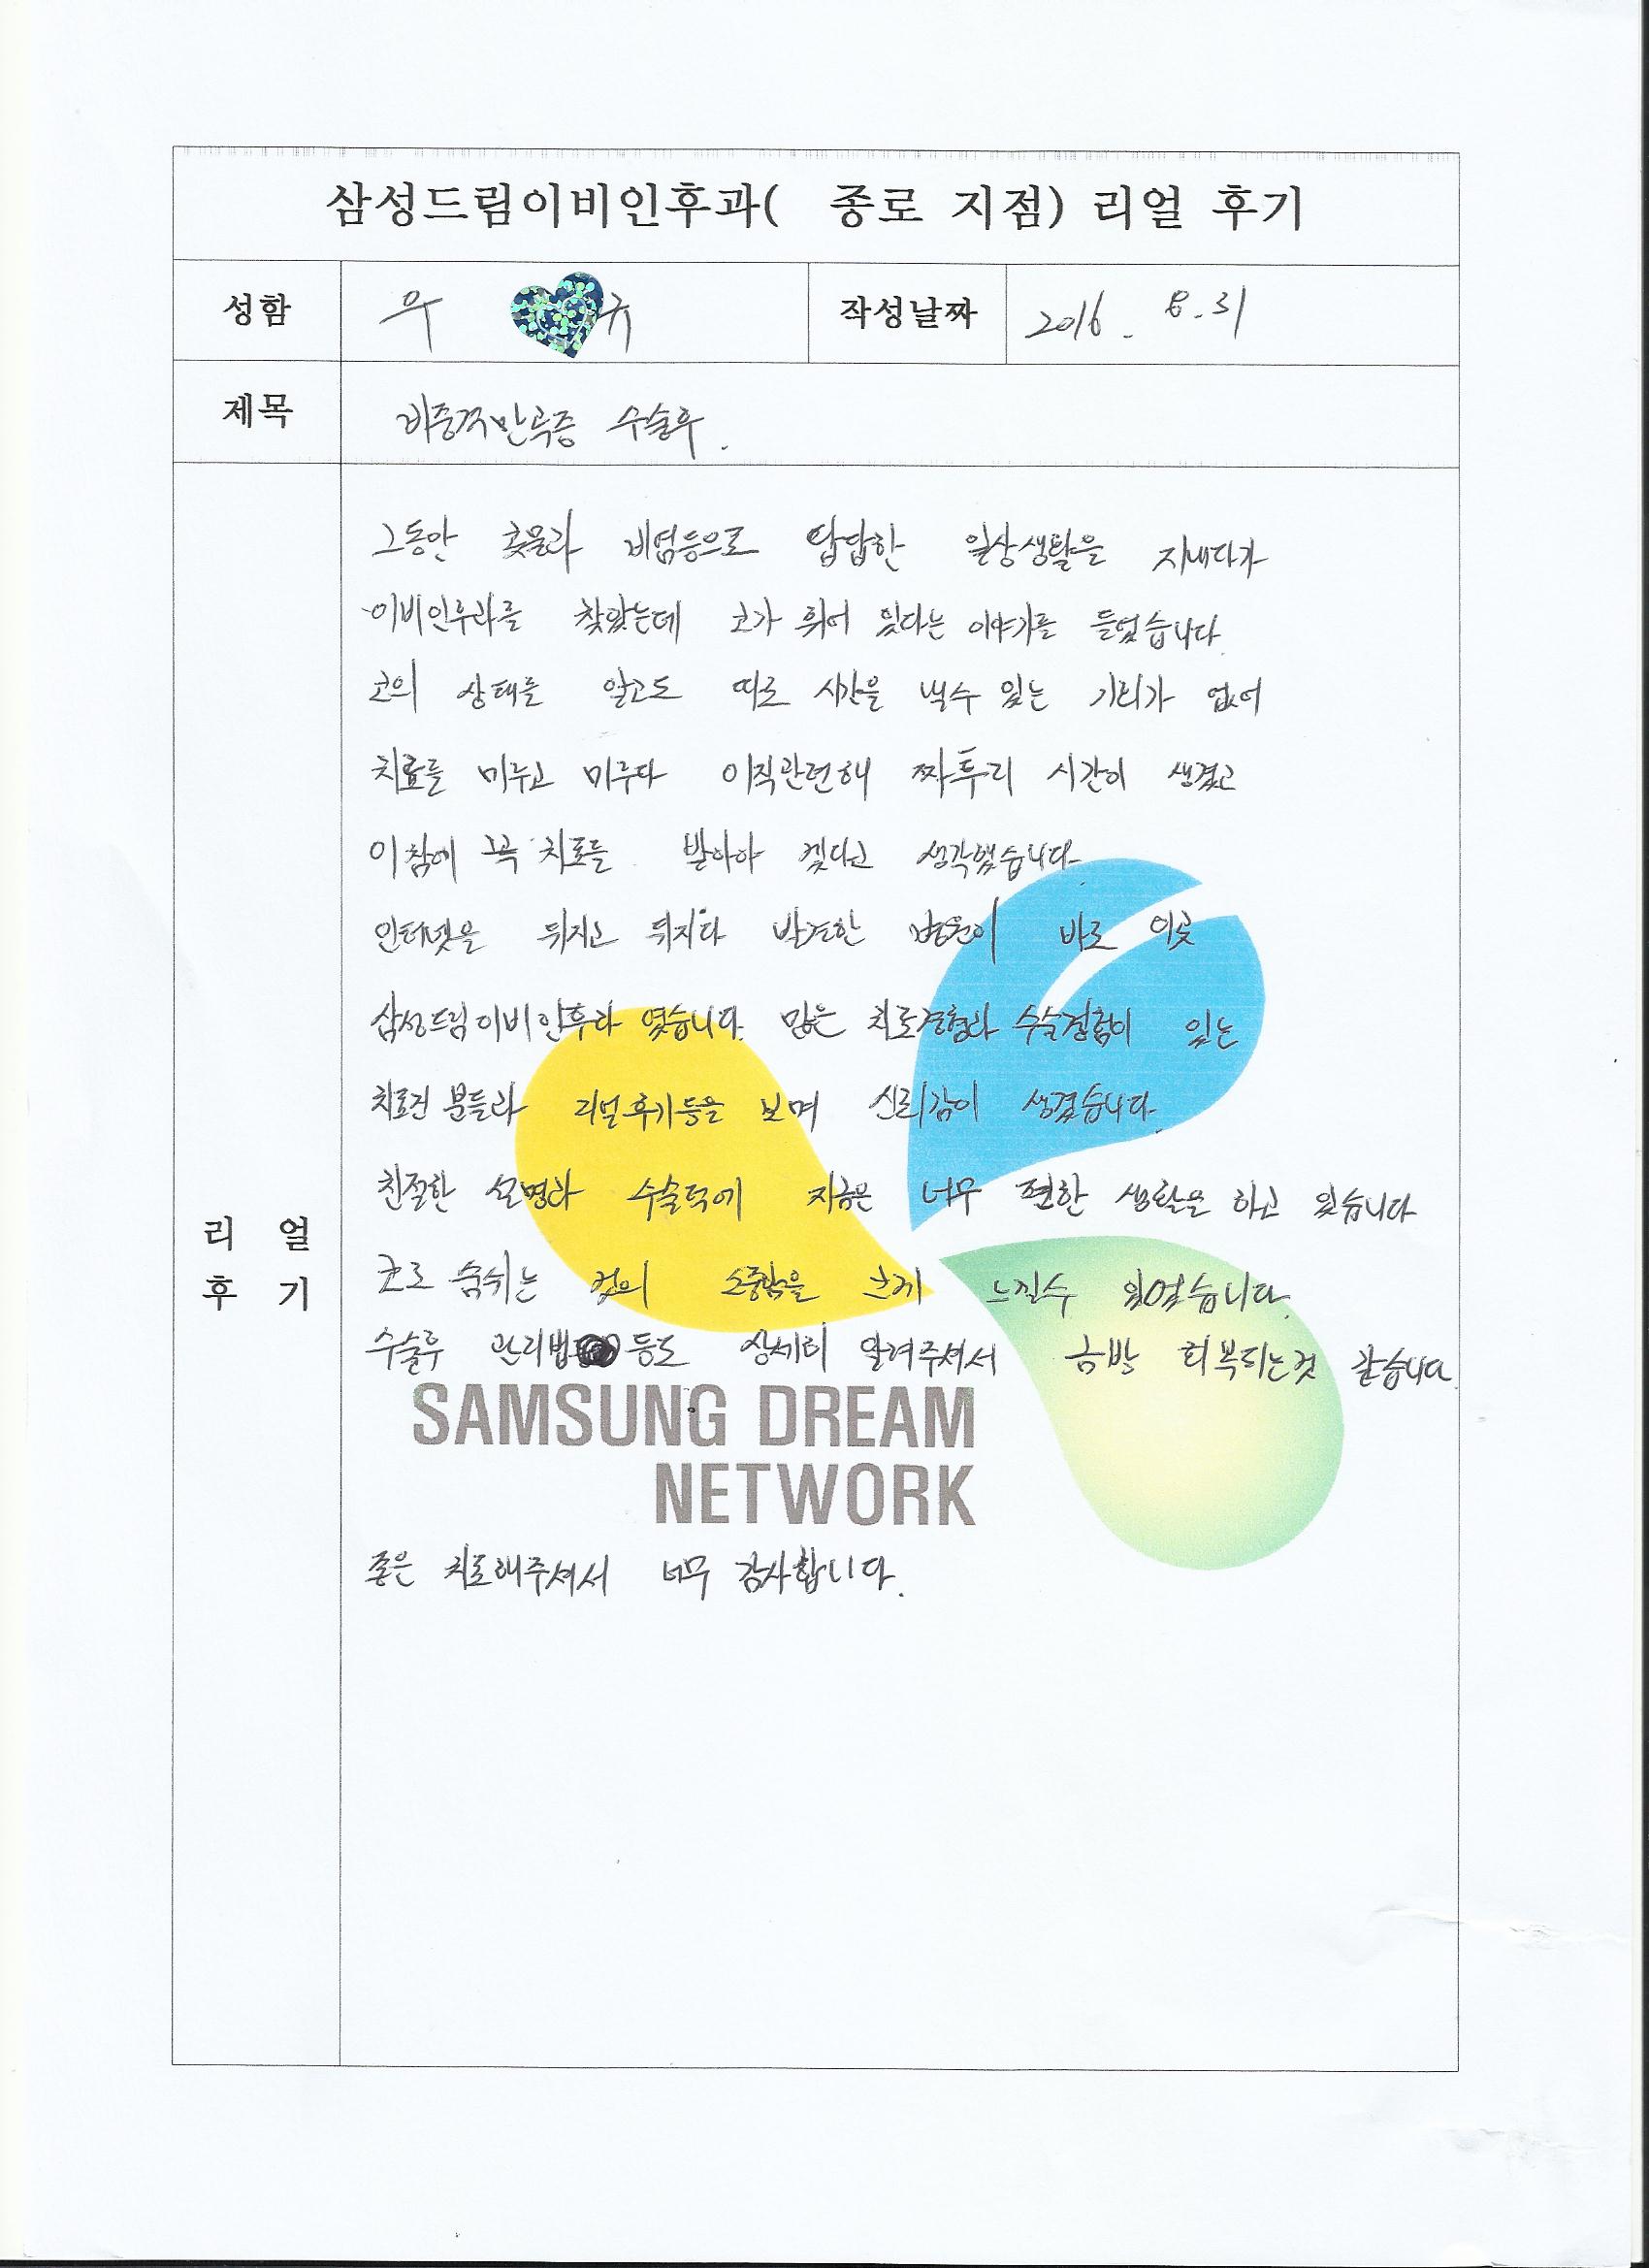 삼성드림이비인후과( 종로 지점) 리얼 후기
성함 우 규 작성날짜 2016. 8. 31
제목 비중격만곡증 수술후.
리얼 후기
그동안 콧물과 비염등으로 답답한 일상생활을 지내다가
이비인후과를 찾았는데 코가 휘어 있다는 이야기를 들었습니다.
코의 상태를 알고도 따로 시간을 낼수 있는 기회가 없어
치료를 미루고 미루다 이직관련해 짜투리 시간이 생겼고
이참에 꼭 치료를 받아야 겠다고 생각했습니다.
인터넷을 뒤지고 뒤지다 발견한 병원이 바로 이곳
삼성드림이비인후과 였습니다. 많은 치료경험과 수술경험이 있는
치료진 분들과 리얼후기등을 보며 신뢰감이 생겼습니다.
친절한 설명과 수술덕에 지금은 너무 편한 생활을 하고 있습니다
코로 숨쉬는 것의 소중함을 크게 느낄수 있었습니다.
수술후 관리법 등도 상세히 알려주셔서 금방 회복되는것 같습니다.
SAMSUNG DREAM
NETWORK
좋은 치료해주셔서 너무 감사합니다.